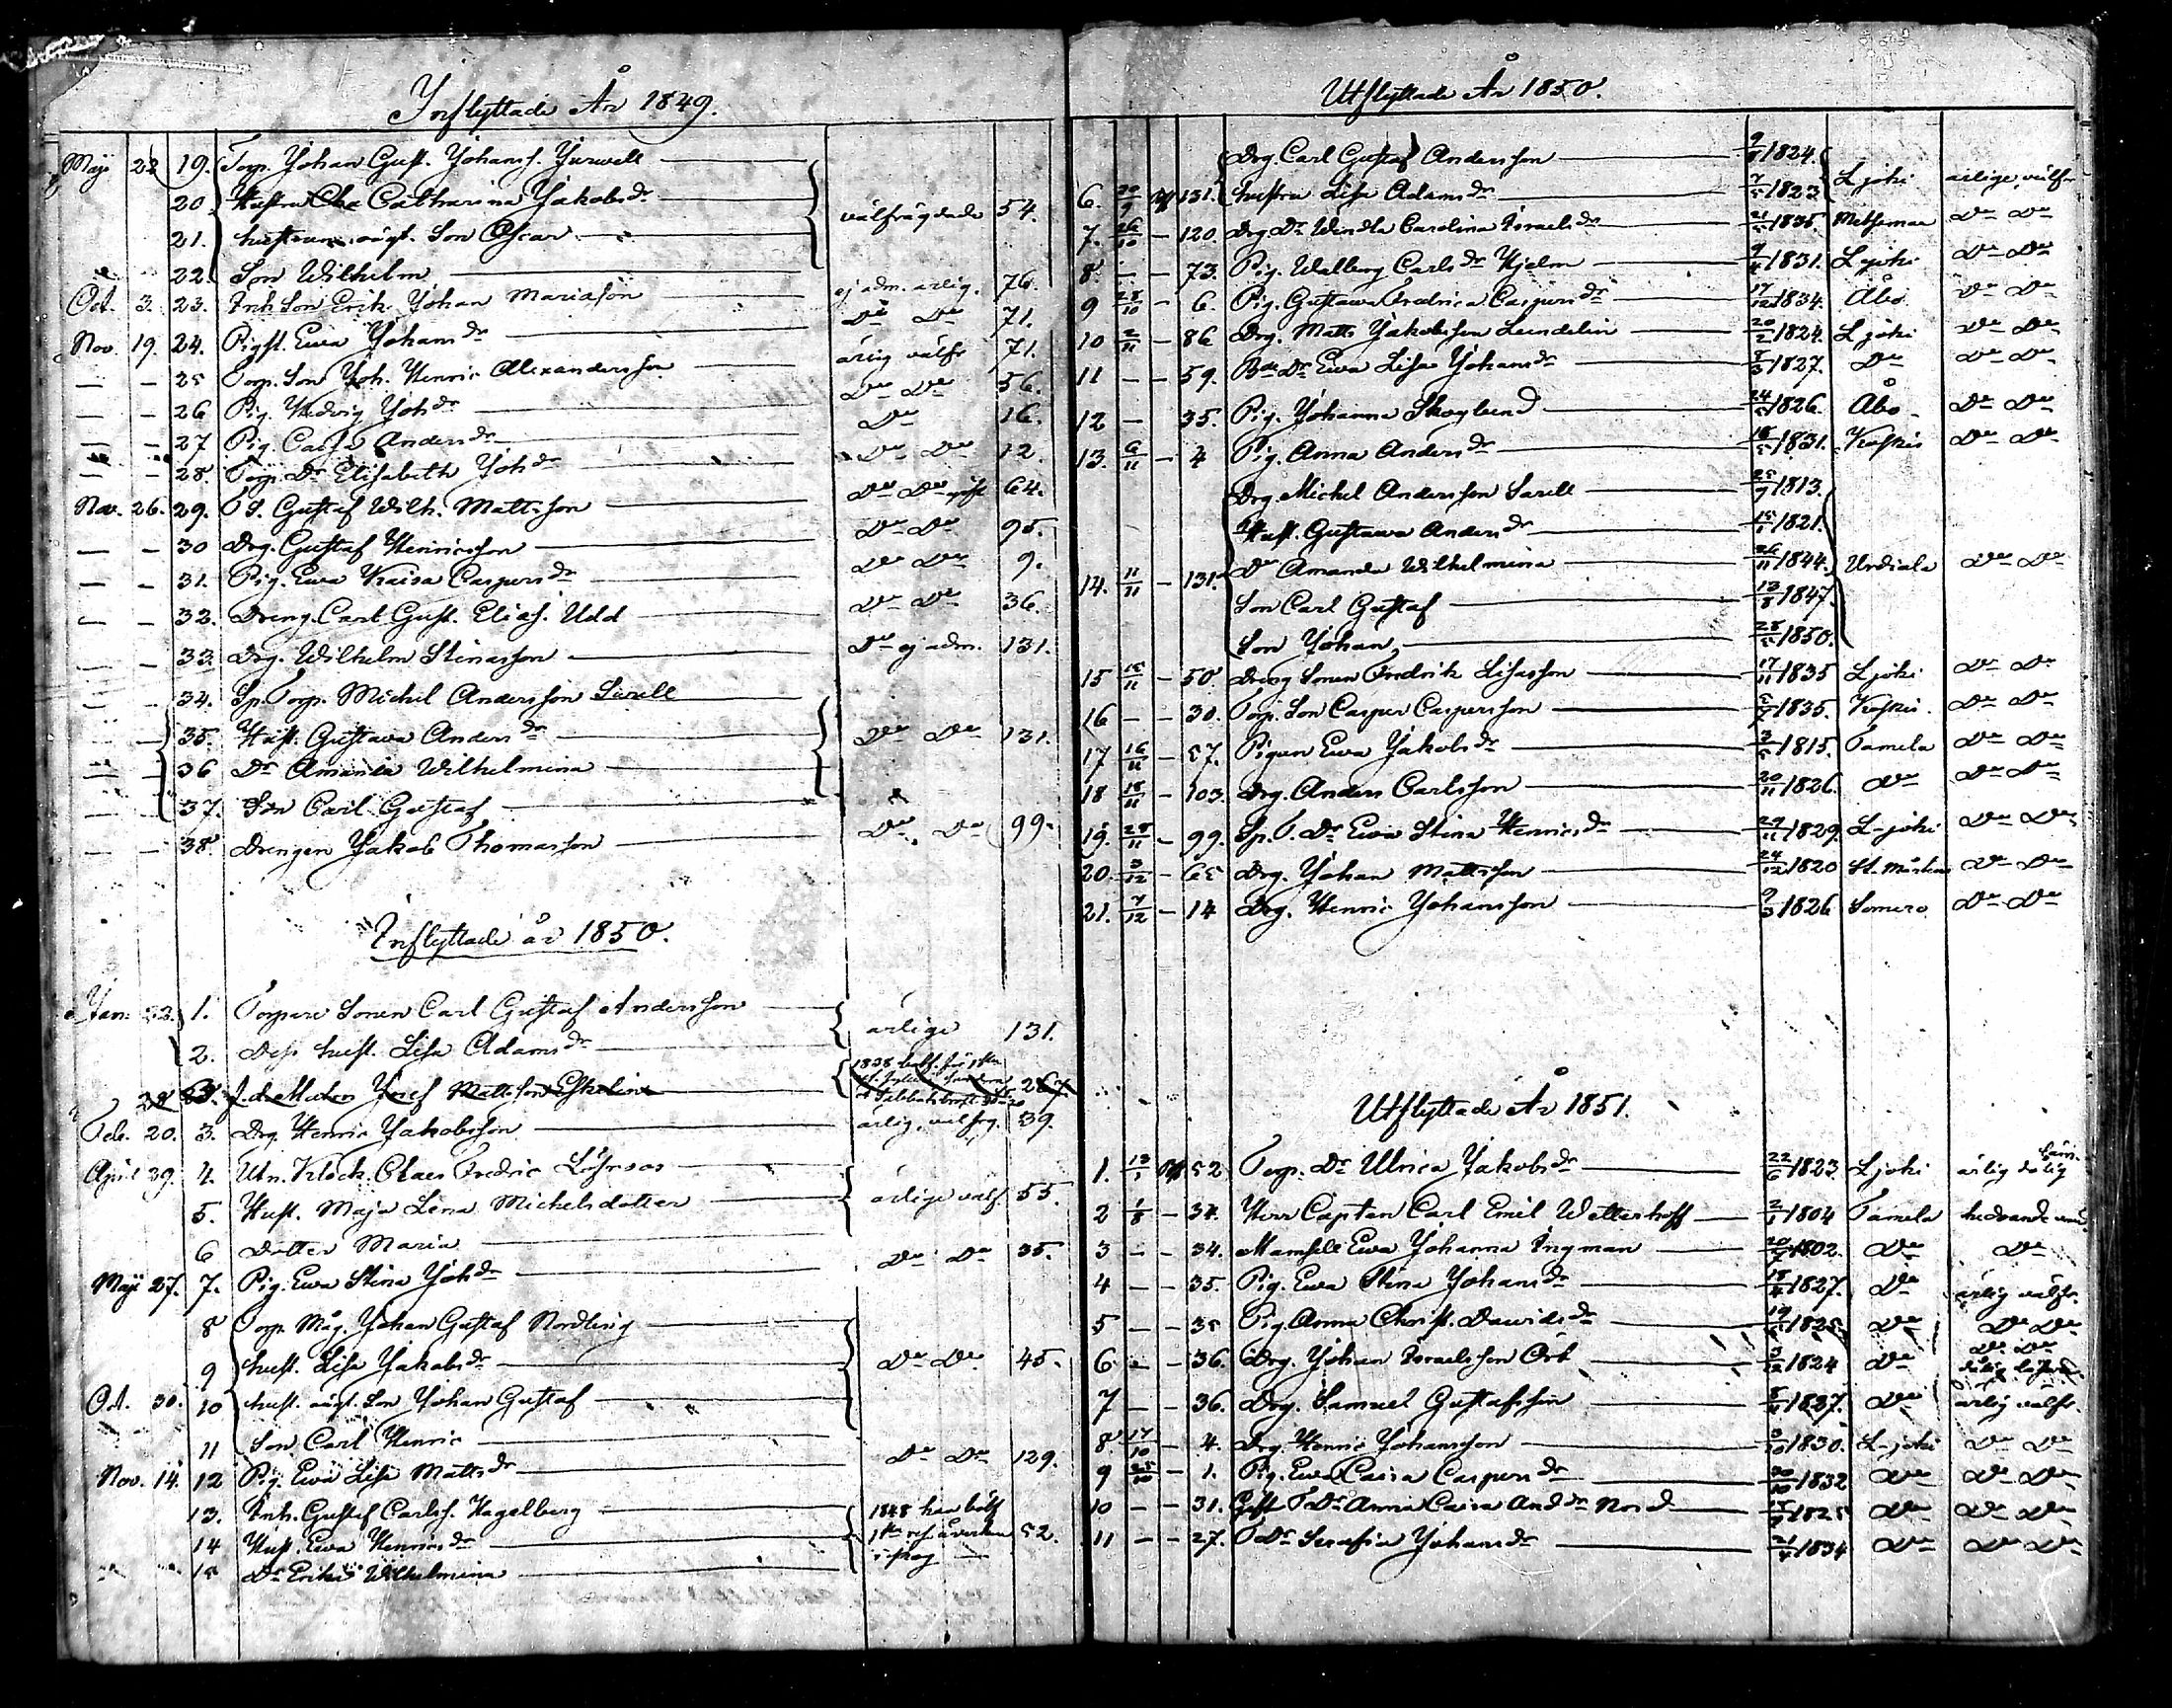 Inflyttade År 1849.
Maji 22 19. Torp. Johan Gust. Johanss. Jurvell
20. Hustru Cha Catharina Jakobsdr välfrägdade 54.
21. hustruns oägt. Son Oscar
22. Son Wilhelm
Oct. 3. 23. Inh. Son Erik Johan Mariasson ej adm. ärlig. 76.
Nov. 19. 24. Pigst. Ewa Johansdr Do Do 71.
— — 25 Torp. Son Joh. Henric Alexandersson ärlig välfr 71.
— — 26 Pig. Hedvig Johdr Do Do 56.
— — 27 Pig. Caisa Andersdr Do 16.
— — 28. Torp. Dr Elisabeth Johdr Do Do 12.
Nov. 26. 29. T.S. Gustaf Wilh. Mattsson Do Do gift 64.
— — 30 Drg. Gustaf Henricsson Do Do 95.
— — 31. Pig. Ewa Kaisa Caspersdr Do Do 9.
— — 32. Dreng. Carl Gust. Eliass. Udd Do Do 36.
— — 33. Drg. Wilhelm Stinasson Do ej adm. 131.
— — 34. Sp. Torp. Michel Andersson Surell
— 35. Hust. Gustava Andersdr Do Do 131.
— 36 Dr Amanda Wilhelmina
— 37. Son Carl Gustaf
— — 38. Drengen Jakob Thomasson Do Do 99.
Inflyttade år 1850.
Jan. 22. 1. Torpare Sonen Carl Gustaf Andersson ärlige 131.
2. Dess hust. Lisa Adamsdr
28 3. Josef Mattsson Eskelin 1838 267
Feb. 20. 3. Drg. Henric Jakobsson ärlig, välfrg. 39.
April 29. 4. Utn. Klock. Claes Fredric Löfroos
5. Hust. Maja Lena Michelsdotter ärlige välf. 55.
6 Dotter Maria
Maji 27. 7. Pig. Ewa Stina Johdr Do Do 35.
8 Torp. Måg. Johan Gustaf Nordling
9 hust. Lisa Jakobsdr Do Do 45.
Oct. 30. 10 hust. oägt. Son Johan Gustaf
11 Son Carl Henric
Nov. 14. 12 Pig. Ewa Lisa Mattsdr Do Do 129.
13. Inh. Gustaf Carlss. Hagelberg 1848
14 Hust. Ewa Henricsdr 52.
15 Dr Erika Wilhelmina i skog
Utflyttade År 1850.
Drg. Carl Gustaf Andersson 1824.
6. 20/9 131. hustru Lisa Adamsdr 7/5 1823 Ljoki ärlige, välfr
7. 26/10 — 120. Drg. Dr Windla Carolina Israelsdr 21/5 1835. Mietsemaa Do Do
8. — — 73. Pig. Walborg Carlsdr Hjelm 9/4 1831. Ljoki Do Do
9 28/10 — 6. Pig. Gustawa Fredrica Caspersdr 17/12 1834. Åbo Do Do
10 2/11 — 86 Drg. Matts Jakobsson Lundelin 20/2 1824. Ljoki Do Do
11 — — 59. Bde Dr Ewa Lisa Johansdr 8/3 1827. Do Do Do
12 — 35. Pig. Johanna Skoglund 24/5 1826. Åbo Do Do
13. 6/11 — 4 Pig. Anna Andersdr 18/5 1831. Koskis Do Do
Drg. Michel Andersson Surell 25/9 1813.
Hust. Gustawa Andersdr 1821.
14. 11/11 — 131. Dr Amanda Wilhelmina 26/11 1844. Urdiala Do Do
Son Carl Gustaf 13/8 1847.
Son Johan 1850.
15 15/11 — 50 Dreng Sonen Fredrik Lisasson 17/11 1835 Ljoki Do Do
16 — — 30. Torp. Son Casper Caspersson 5/7 1835. Koskis. Do Do
17 16/11 — 57. Pigan Ewa Jakobsdr 3/5 1815. Tamela Do Do
18 18/11 — 103. Drg. Anders Carlsson 20/11 1826. Do Do Do
19. 28/11 — 99. Sp. T. Dr Ewa Stina Henricsdr 29/11 1829. Ljoki Do Do
20. 3/12 — 65 Drg. Johan Mattsson 24/12 1820 St. Mårtens Do Do
21. 7/12 — 14 Drg. Henric Johansson 9/3 1826 Somero Do Do
Utflyttade År 1851.
1. 13/1 52 Torp. Dr Ulrica Jakobsdr 22/6 1823. Ljoki ärlig
2 1/8 — 34. Herr Capten Carl Emil Wetterhoff 2/1 1804 Tamela hedrande
3 — — 34. Mamsell Ewa Johanna Ingman 20/7 1802. Do Do
4 — — 35. Pig. Ewa Stina Johansdr 1827. Do ärlig välfr.
5 — — 35 Pig. Anna Christ. Davidsdr 1825. Do Do Do
6 — — 36. Drg. Johan Israelsson Ört 1824 Do Do Do
7 — — 36. Drg. Samuel Gustafsson 1827. Do ärlig välfr.
8 17/10 — 4. Drg. Henric Johansson 1830. Ljoki Do Do
9 25/10 — 1. Pig. Ewa Caisa Caspersdr 30/10 1832 Do Do Do
10 — — 31. Gift T Dr Anna Caisa Anddr Nord 1825 Do Do Do
11 — — 27. T Dr Serafia Johansdr 21/4 1834 Do Do Do